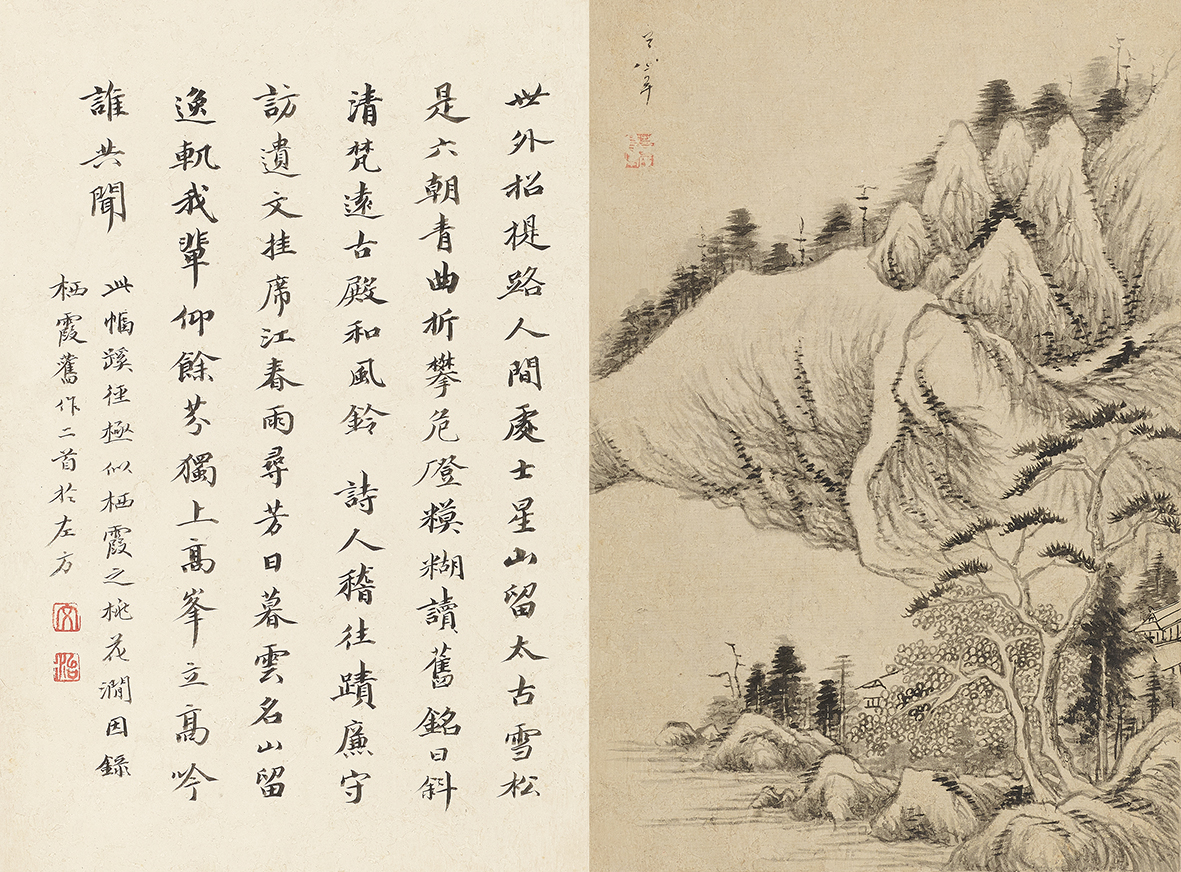 世外招提路人間處士星山留太古雪松
是六朝青曲折攀危磴糢糊讀舊銘日斜
清梵遠古殿和風鈴 詩人稽往蹟廉守
訪遺文挂席江春雨尋芳日暮雲名山留
逸軌我輩仰餘芬獨上高峯立高吟
誰共聞
此幅蹊徑極似栖霞之桃花澗因錄
栖霞舊作二首於左方
文
治